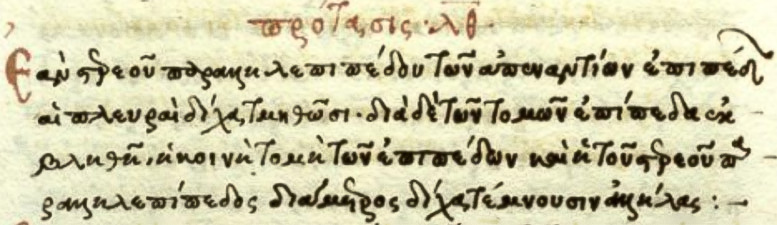 πρότασις · λθ
Ἐὰν στερεοῦ παραλληλεπιπέδου τῶν ἀπεναντίων ἐπιπέδων
αἱ πλευραὶ δίχα τμηθῶσι · διὰ δὲ τῶν τομῶν ἐπίπεδα ἐκ
βληθῆ, ἡ κοινὴ τομὴ τῶν ἐπιπέδων καὶ ἡ τοῦ στερεοῦ πα
ραλληλεπιπέδου διάμετρος δίχα τέμνουσιν ἀλλήλας : –